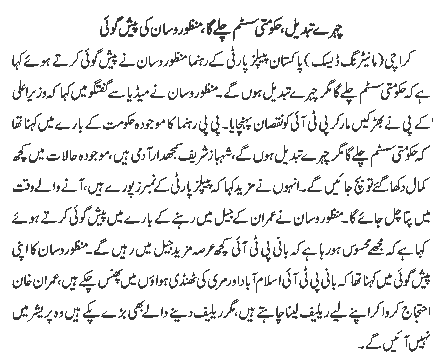 چہرے تبدیل، حکومتی سسٹم چلے گا، منظور وسان کی پیش گوئی
کراچی (مانیٹرنگ ڈیسک) پاکستان پیپلز پارٹی کے رہنما منظور وسان نے پیش گوئی کرتے ہوئے کہا
ہے کہ حکومتی سسٹم چلے گا مگر چہرے تبدیل ہوں گے۔ منظور وسان نے میڈیا سے گفتگو میں کہا کہ وزیراعلیٰ
کے پی نے بھڑکیں مار کر پی ٹی آئی کو نقصان پہنچایا۔ پی پی رہنما کا موجودہ حکومت کے بارے میں کہنا تھا
کہ حکومتی سسٹم چلے گا مگر چہرے تبدیل ہوں گے، شہباز شریف سمجھدار آدمی ہیں، موجودہ حالات میں کچھ
کمال دکھا گئے تو بچ جائیں گے۔ انہوں نے مزید کہا کہ پیپلز پارٹی کے نمبرز پورے ہیں، آنے والے وقت
میں پتا چل جائے گا۔ منظور وسان نے عمران کے جیل میں رہنے کے بارے میں پیش گوئی کرتے ہوئے
کہا ہے کہ مجھے محسوس ہو رہا ہے کہ بانی پی ٹی آئی کچھ عرصہ مزید جیل میں رہیں گے۔ منظور وسان کا اپنی
پیش گوئی میں کہنا تھا کہ بانی پی ٹی آئی اسلام آباد اور مری کی ٹھنڈی ہواؤں میں پھنس چکے ہیں، عمران خان
احتجاج کروا کر اپنے لیے ریلیف لینا چاہتے ہیں، مگر ریلیف دینے والے بھی بڑے پکے ہیں وہ پریشر میں
نہیں آئیں گے۔